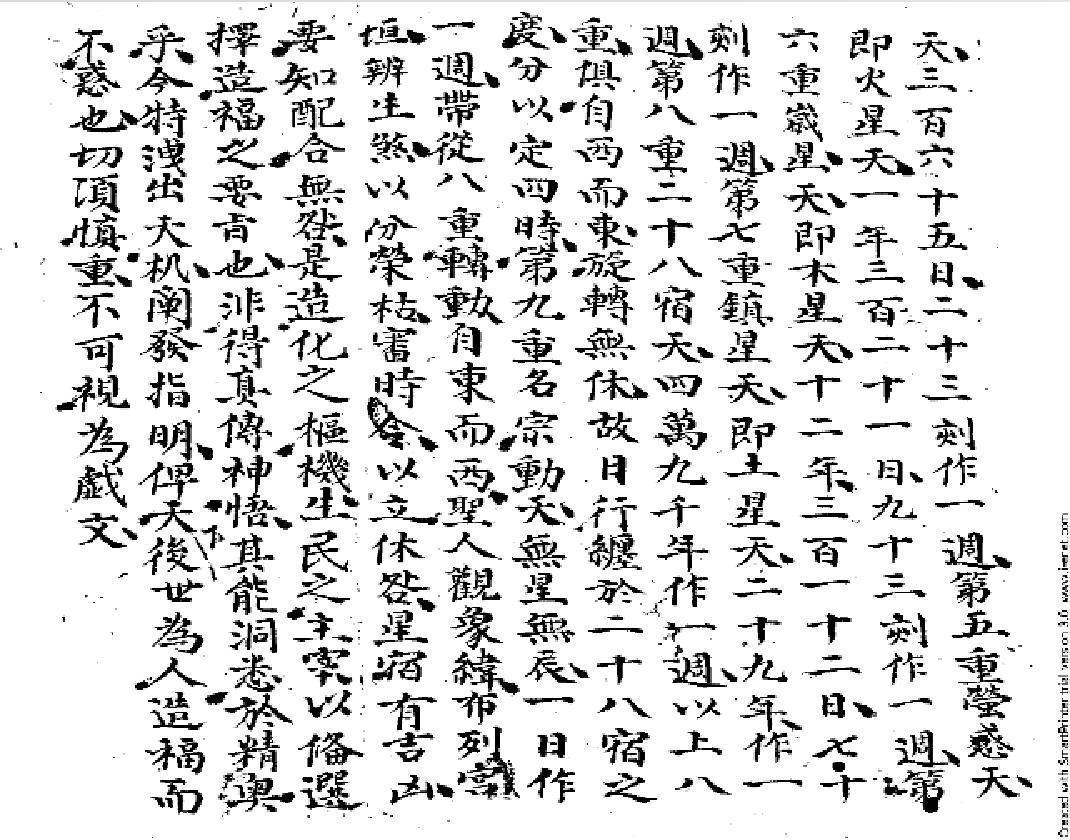 天三百六十五日二十三刻作一週第五重熒惑天
即火星天一年三百二十一日九十三刻作一週第
六重歲星天即木星天十二年三百一十二日七十
刻作一週第七重鎮星天即土星天二十九年作一
週第八重二十八宿天四萬九千年作一週以上八
重俱自西而東旋轉無休故日行纏於二十八宿之
度分以定四時第九重名宗動天無星無辰一日作
一週帶從八重轉動自東而西聖人觀象緯布列宮
垣辨生煞以分榮枯審時令以立休咎星宿有吉凶
要知配合無咎是造化之樞機生民之主宰以俻選
擇造福之要旨也非得真傳神悟其能洞悉於精奧
乎今特洩出天机阐發指明俾天後世為人造福而
不惑也切須慎重不可視為戯文
Created with SmartPrinter trial version 3.6 www.i-enet.com